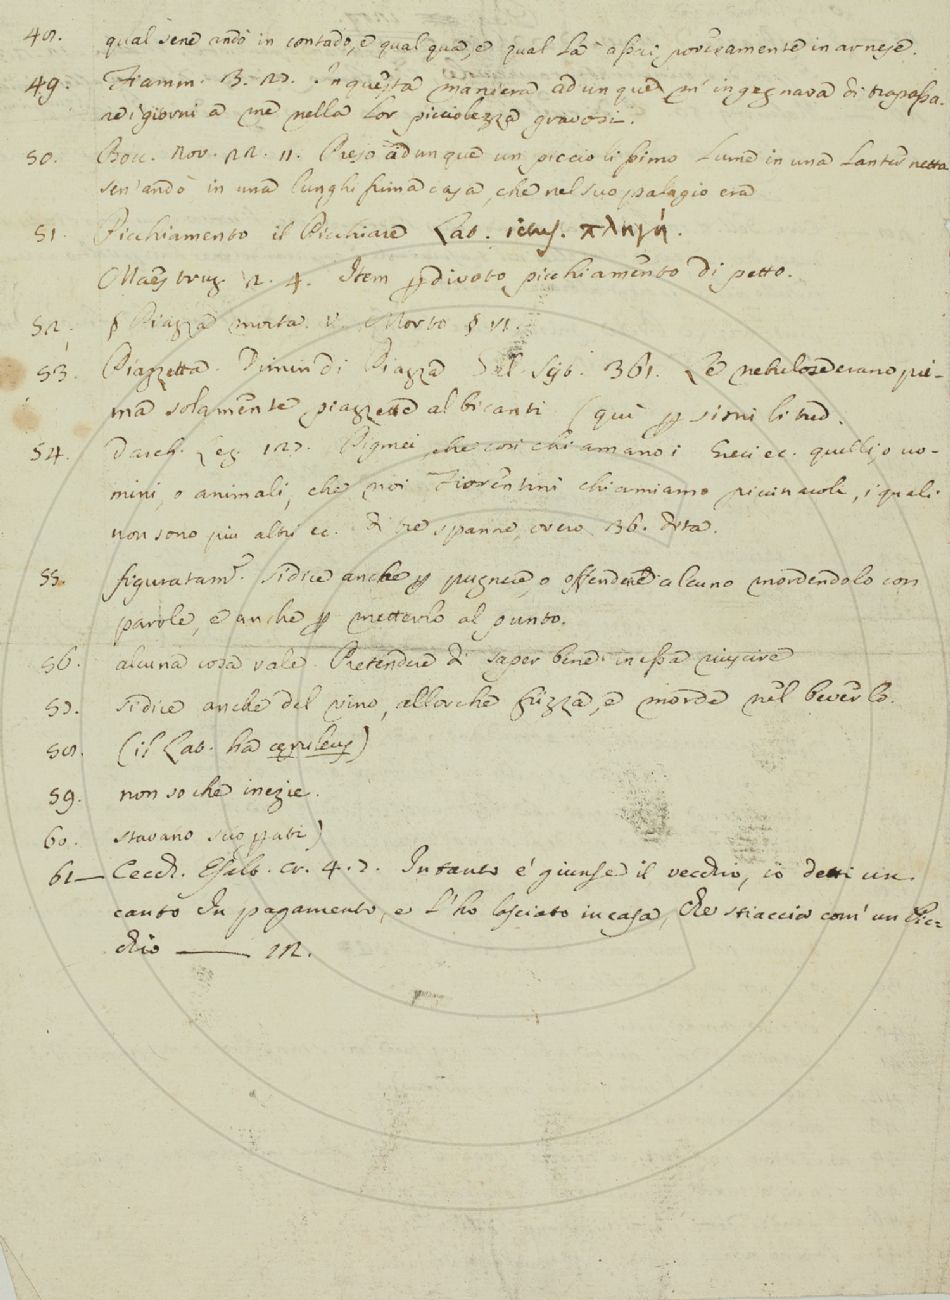 48. qual sene andò in contado, e qual quà, e qual là assai poveramente in arnese.
49. Fiamm. 3. 27. In questa maniera adunque m'ingegnava di trapassa-
re i giorni a me nella lor picciolezza gravosi.
50. Bocc. Nov. 22. 11. Preso adunque un picciolissimo lume in una lanternetta
sen'andò in una lunghissima casa, che nel suo palagio era
51. Picchiamento il Picchiare Lat. ictus. πληγή.
Maestruz. 2. 4. Item p divoto picchiamento di petto.
52. § Piazza morta. V. Morto § VI.
53. Piazzetta. Dimin di Piazza Sag. 361. Le nebulose erano pri-
ma solamente piazzette albicanti (quì p similitud.
54. Dasch. Lez. 127. Pigmei che così chiamano i Greci ec. quelli, o uo-
mini, o animali, che noi Fiorentini chiamiamo piccinacoli, i quali
non sono più alti ec. di tre spanne, overo 36. dita.
55. figuratam.e si dice anche p pugnere, o offendere alcuno mordendolo con
parole, e anche p metterlo al punto.
56. alcuna cosa vale Pretendere di saper bene in essa riuscire
57. si dice anche del vino, allorchè frizza, e morde nel beverlo.
58. (il Lat. ha cęruleus)
59. non so che inezie.
60. stavano
61— Cecch. Esalt. cr. 4. 7. Intanto e' giunse il vecchio, io detti un
canto in pagamento, e l'ho lasciato in casa, che stiaccia com' un Pic=
chio —— M.